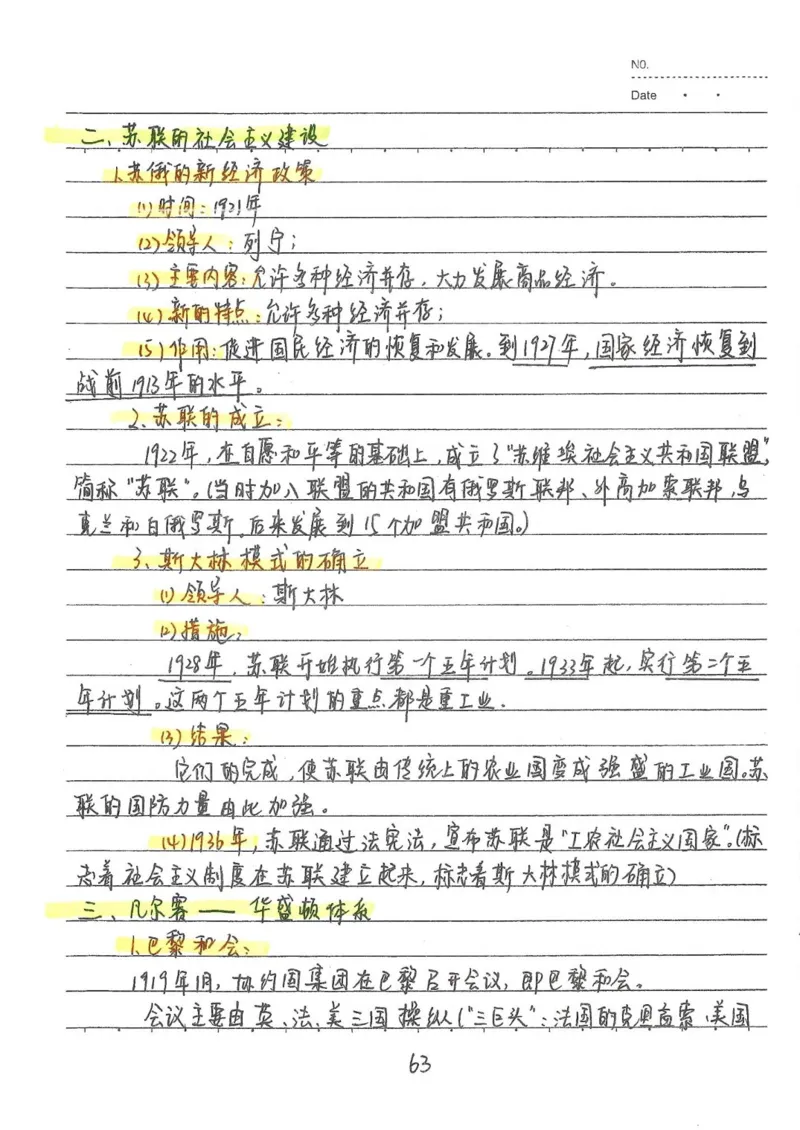 NO.
Date
二、苏联的社会主义建设
1、苏俄的新经济政策
(1)时间：1921年
(2)领导人：列宁；
(3)主要内容：允许多种经济并存，大力发展商品经济。
(4)新的特点：允许多种经济并存；
(5)作用：促进国民经济的恢复和发展。到1927年，国家经济恢复到
战前1913年的水平。
2、苏联的成立：
1922年，在自愿和平等的基础上，成立了“苏维埃社会主义共和国联盟”，
简称“苏联”。(当时加入联盟的共和国有俄罗斯联邦、外高加索联邦，乌
克兰和白俄罗斯。后来发展到15个加盟共和国。)
3、斯大林模式的确立
(1)领导人：斯大林
(2)措施：
1928年，苏联开始执行第一个五年计划。1933年起，实行第二个五
年计划。这两个五年计划的重点都是重工业．
(3)结果：
它们的完成，使苏联由传统上的农业国变成强盛的工业国。苏
联的国防力量由此加强。
(4)1936年，苏联通过法宪法，宣布苏联是“工农社会主义国家”。(标
志着社会主义制度在苏联建立起来，标志着斯大林模式的确立)
三、凡尔赛——华盛顿体系
1、巴黎和会：
1919年1月，协约国集团在巴黎召开会议，即巴黎和会。
会议主要由英、法、美三国操纵(“三巨头”：法国的克里孟索、美国
63